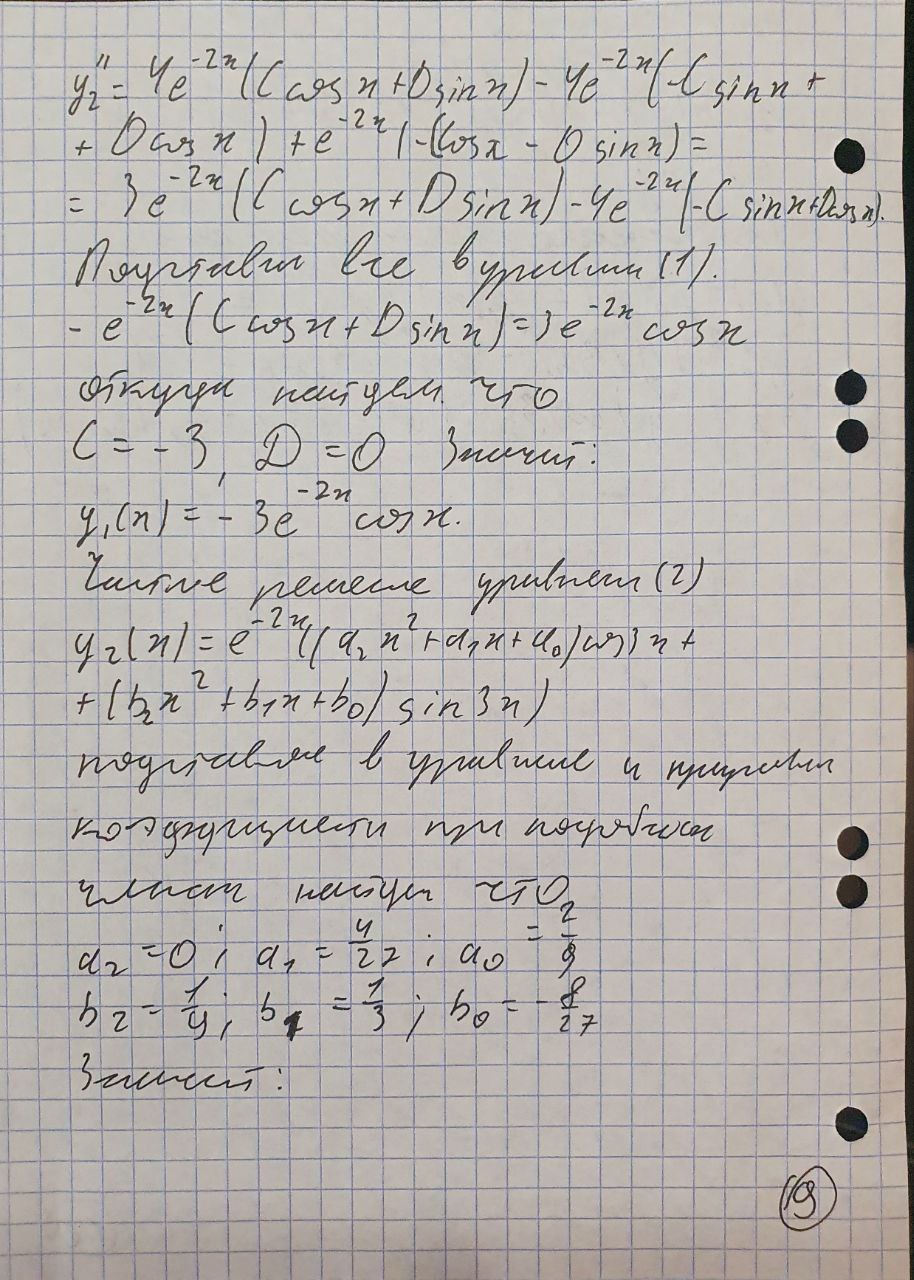 y₂'' = 4e^{-2x}(C cos x + D sin x) - 4e^{-2x}(-C sin x +
+ D cos x) + e^{-2x}(-C cos x - D sin x) =
= 3e^{-2x}(C cos x + D sin x) - 4e^{-2x}(-C sin x + D cos x).
Подставим все в уравнении (1).
- e^{-2x}(C cos x + D sin x) = 3e^{-2x} cos x
откуда найдем что
C = -3, D = 0 Значит:
y₁(x) = -3e^{-2x} cos x.
Частное решение уравнения (2)
y₂(x) = e^{-2x}((a₂x² + a₁x + a₀) cos 3x +
+ (b₂x² + b₁x + b₀) sin 3x)
подставляя в уравнение и приравняв
коэффициенты при подобных
членах найдем что
a₂ = 0; a₁ = 4/27; a₀ = 2/9
b₂ = 1/9; b₁ = 1/3; b₀ = -8/27
Значит:
19